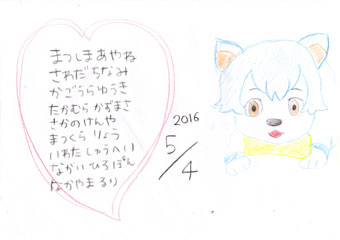 まつしまあやね
さわだちなみ
かごうらゆうき
たかむらかずまさ
さかのけんや
まつくらりょう
いわたしゅうへい
ながいひろぽん
なかやまるり
2016
5/4